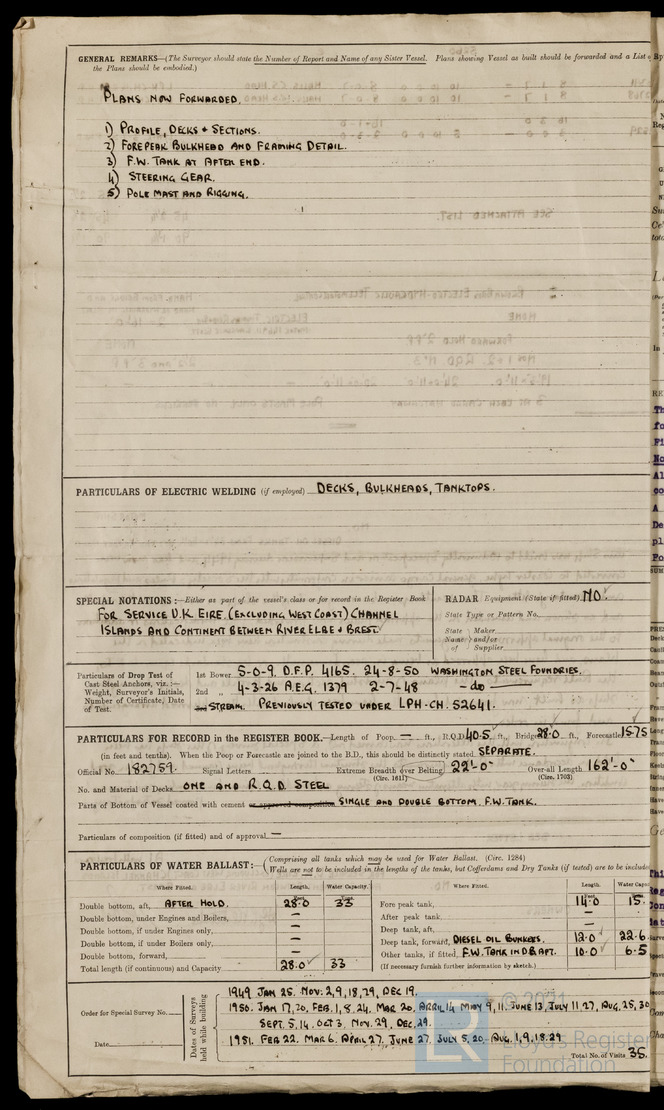 GENERAL REMARKS—(The Surveyor should state the Number of Report and Name of any Sister Vessel. Plans showing Vessel as built should be forwarded and a List
the Plans should be embodied.)
PLANS NOW FORWARDED.
1) PROFILE, DECKS & SECTIONS.
2) FOREPEAK BULKHEAD AND FRAMING DETAIL.
3) F.W. TANK AT AFTER END.
4) STEERING GEAR.
5) POLE MAST AND RIGGING.
PARTICULARS OF ELECTRIC WELDING (if employed) DECKS, BULKHEADS, TANKTOPS.
SPECIAL NOTATIONS:—Either as part of the vessel's class or for record in the Register Book
FOR SERVICE U.K. EIRE. (EXCLUDING WEST COAST) CHANNEL
ISLANDS AND CONTINENT BETWEEN RIVER ELBE & BREST.
RADAR Equipment (State if fitted) NO
State Type or Pattern No.
State Maker
Name and/or
of Supplier
Particulars of Drop Test of
Cast Steel Anchors, viz.:—
Weight, Surveyor's Initials,
Number of Certificate, Date
of Test.
1st Bower 5-0-9. D.F.P. 4165. 24-8-50 WASHINGTON STEEL FOUNDRIES.
2nd „ 4-3-26 A.E.G. 1379 2-7-48 —do—
STREAM. PREVIOUSLY TESTED UNDER LPH-CH. 52641.
PARTICULARS FOR RECORD in the REGISTER BOOK.—Length of Poop — ft., R.Q.D. 40.5 ft., Bridge 28.0 ft., Forecastle 15.75
(in feet and tenths). When the Poop or Forecastle are joined to the B.D., this should be distinctly stated SEPARATE.
Official No. 182759. Signal Letters Extreme Breadth over Belting 22'-0" Over-all Length 162'-0"
(Circ. 1611) (Circ. 1703)
No. and Material of Decks ONE AND R.Q.D. STEEL
Parts of Bottom of Vessel coated with cement or approved composition SINGLE AND DOUBLE BOTTOM. F.W. TANK.
Particulars of composition (if fitted) and of approval —
PARTICULARS OF WATER BALLAST:—(Comprising all tanks which may be used for Water Ballast. (Circ. 1284)
Wells are not to be included in the lengths of the tanks, but Cofferdams and Dry Tanks (if tested) are to be include
Where Fitted. Length. Water Capacity. Where Fitted. Length. Water Capac
Double bottom, aft, AFTER HOLD. 28.0 33 Fore peak tank, 14.0 15.
Double bottom, under Engines and Boilers, — After peak tank, —
Double bottom, if under Engines only, — Deep tank, aft, —
Double bottom, if under Boilers only, — Deep tank, forward, DIESEL OIL BUNKERS. 12.0 22.6
Double bottom, forward, — Other tanks, if fitted, F.W. TANK IN D.B. AFT. 10.0 6.5
Total length (if continuous) and Capacity 28.0 33 (If necessary furnish further information by sketch.)
Order for Special Survey No.
Date
Dates of Surveys
held while building
1949 JAN 25. NOV: 2,9,18,29, DEC 19.
1950. JAN 17,20, FEB. 1,8,24. MAR 20, APRIL 14 MAY 9,11. JUNE 13, JULY 11.27, AUG, 25, 30
SEPT. 5,14, OCT 3, NOV. 29, DEC, 29.
1951. FEB 22. MAR 6. APRIL 27. JUNE 27. JULY 5, 20. AUG. 1,9,18.29
Total No. of Visits 35.
© 2021
LR
Lloyd's Register
Foundation